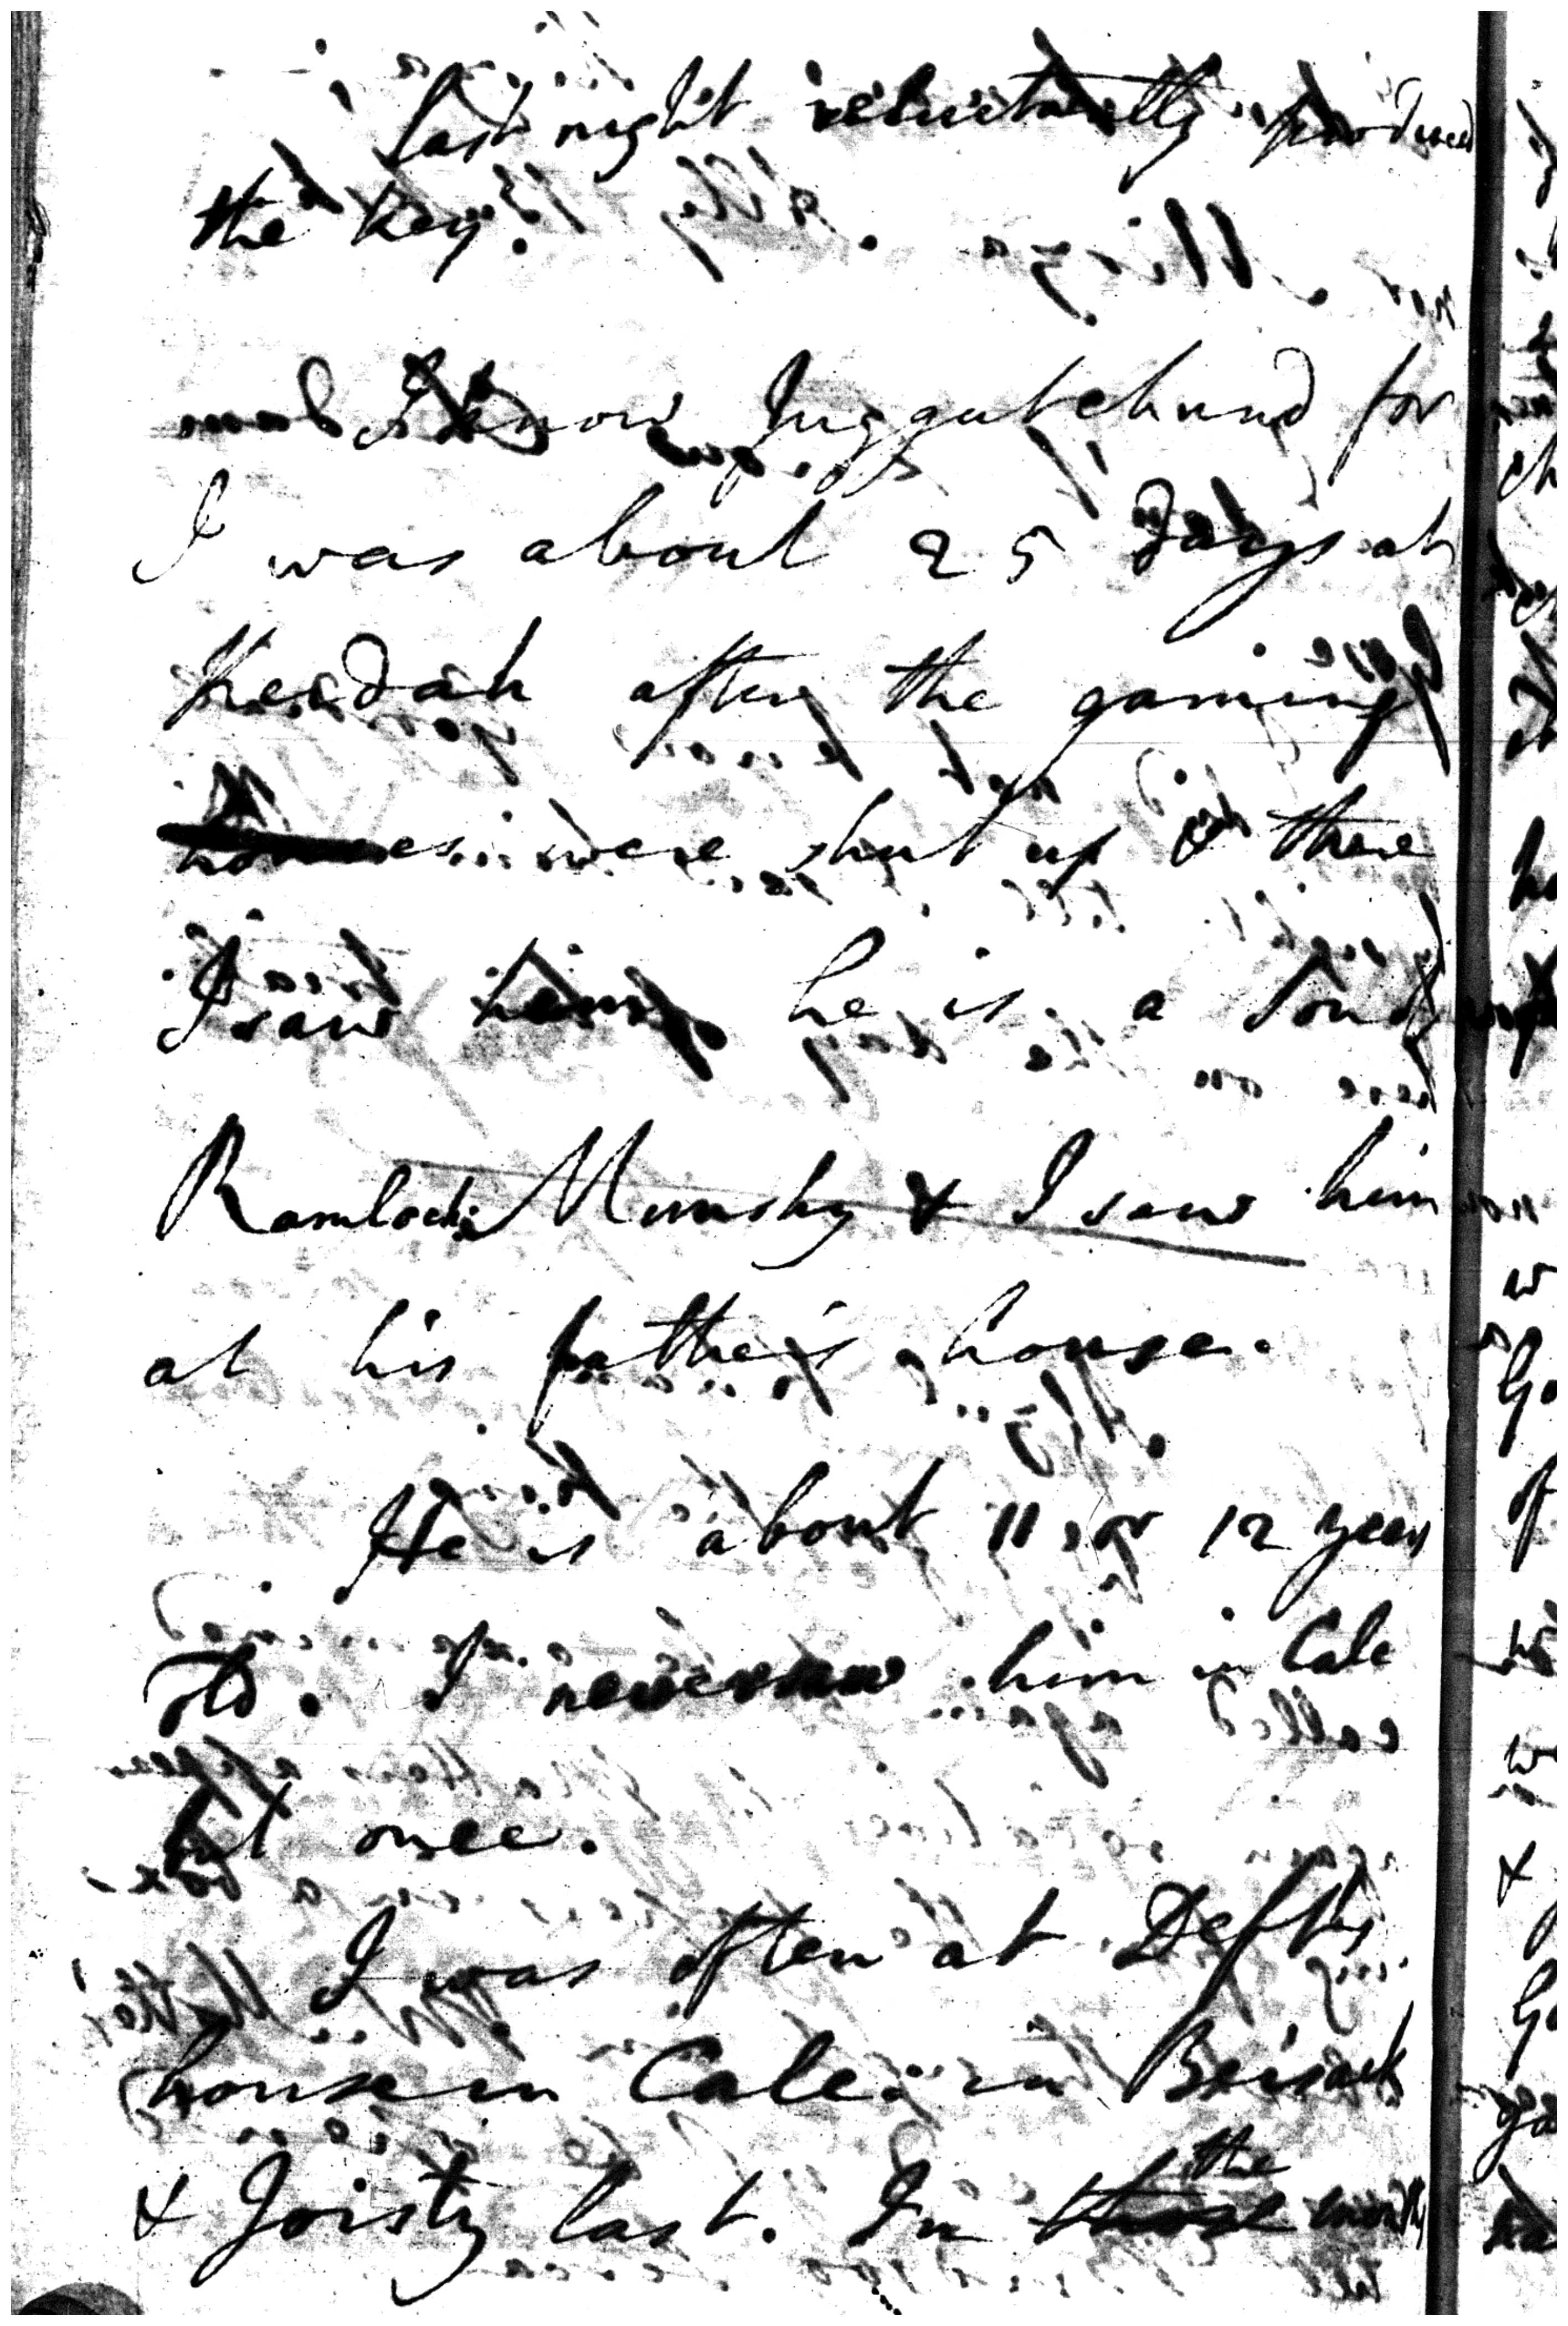 last night reluctantly produced
the key.
I know Juggutchund for
I was about 25 days at
Kerdah after the gaming
houses were shut up & there
I saw him he is a Son of
Ramlochn Munshy & I saw him
at his father's house.
He is about 11 or 12 years
old. I never saw him in Calc
but once.
I was often at Defts
house in Calc. in Beisack
& Joisty last. In the months